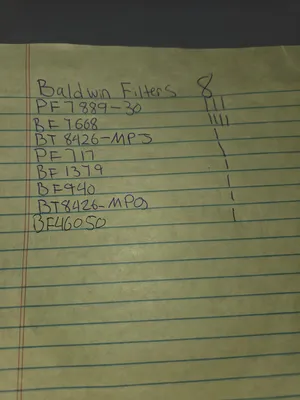 Baldwin Filters 8
PF7889-30 |||
BF7668 ||||
BT8426-MPS \
PF717 \
BF1379 |
BF940 |
BT8426-MPG |
BF46050 |